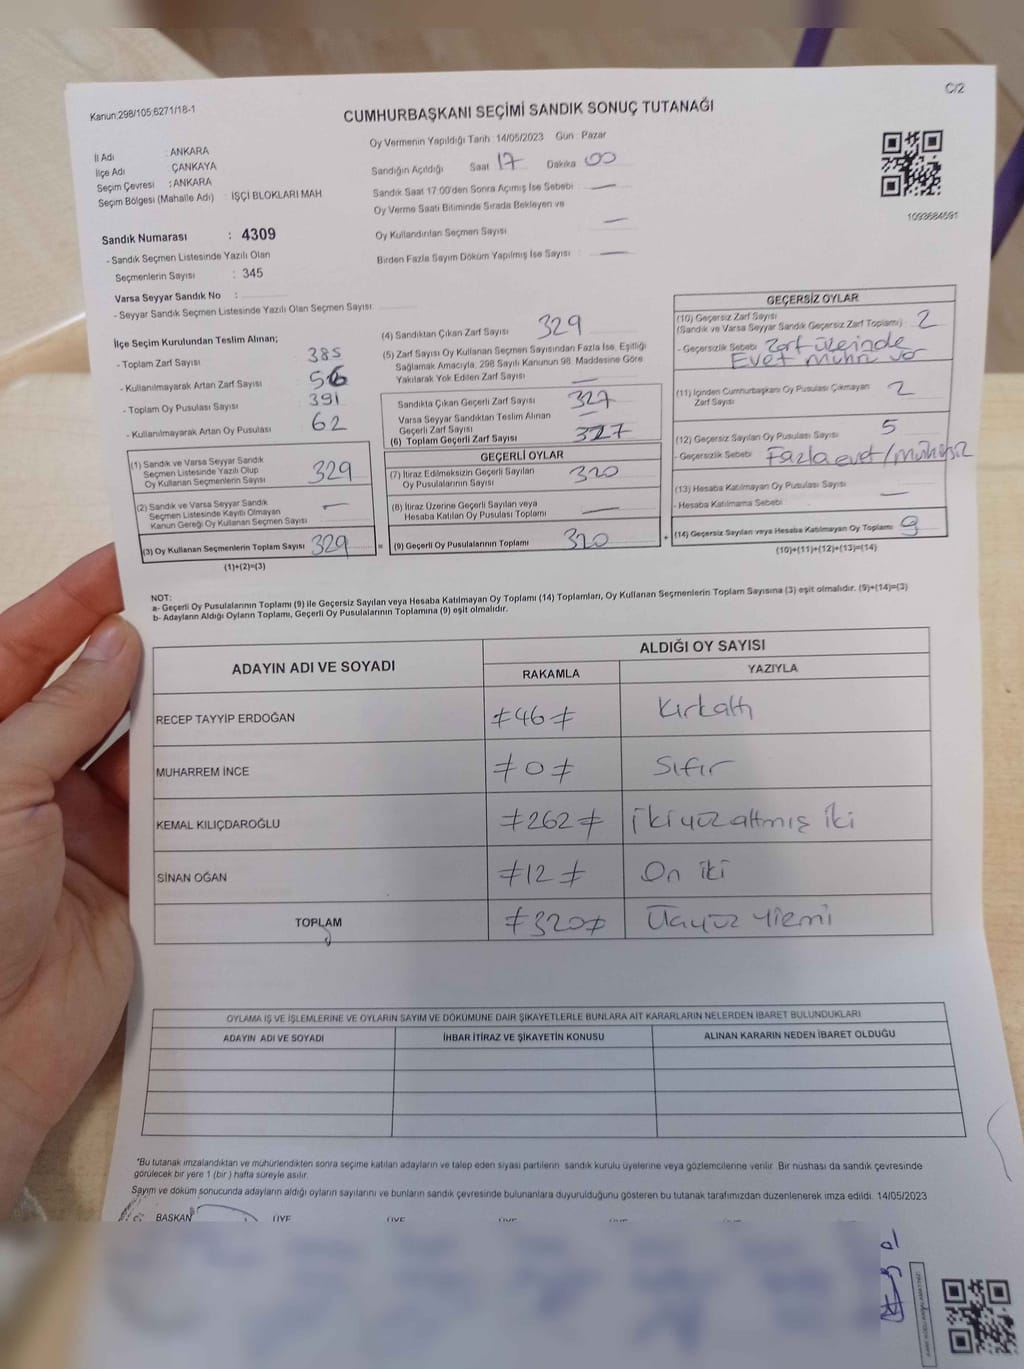 C/2
Kanun:298/105;6271/18-1
CUMHURBAŞKANI SEÇİMİ SANDIK SONUÇ TUTANAĞI
Oy Vermenin Yapıldığı Tarih :14/05/2023 Gün : Pazar
İl Adı : ANKARA
İlçe Adı : ÇANKAYA
Seçim Çevresi : ANKARA
Seçim Bölgesi (Mahalle Adı) : İŞÇİ BLOKLARI MAH
Sandığın Açıldığı Saat 17 Dakika 00
Sandık Saat 17:00'den Sonra Açımış İse Sebebi : —
Oy Verme Saati Bitiminde Sırada Bekleyen ve
Oy Kullandırılan Seçmen Sayısı —
Birden Fazla Sayım Döküm Yapılmış İse Sayısı : —
1093684591
Sandık Numarası : 4309
- Sandık Seçmen Listesinde Yazılı Olan
Seçmenlerin Sayısı : 345
Varsa Seyyar Sandık No :
- Seyyar Sandık Seçmen Listesinde Yazılı Olan Seçmen Sayısı:
İlçe Seçim Kurulundan Teslim Alınan;
- Toplam Zarf Sayısı 385
- Kullanılmayarak Artan Zarf Sayısı 56
- Toplam Oy Pusulası Sayısı 391
- Kullanılmayarak Artan Oy Pusulası 62
(1) Sandık ve Varsa Seyyar Sandık
Seçmen Listesinde Yazılı Olup
Oy Kullanan Seçmenlerin Sayısı 329
(2) Sandık ve Varsa Seyyar Sandık
Seçmen Listesinde Kayıtlı Olmayan
Kanun Gereği Oy Kullanan Seçmen Sayısı —
(3) Oy Kullanan Seçmenlerin Toplam Sayısı 329
(1)+(2)=(3)
(4) Sandıktan Çıkan Zarf Sayısı 329
(5) Zarf Sayısı Oy Kullanan Seçmen Sayısından Fazla İse, Eşitliği
Sağlamak Amacıyla, 298 Sayılı Kanunun 98. Maddesine Göre
Yakılarak Yok Edilen Zarf Sayısı —
Sandıkta Çıkan Geçerli Zarf Sayısı 327
Varsa Seyyar Sandıktan Teslim Alınan
Geçerli Zarf Sayısı —
(6) Toplam Geçerli Zarf Sayısı 327
GEÇERLİ OYLAR
(7) İtiraz Edilmeksizin Geçerli Sayılan
Oy Pusulalarının Sayısı 320
(8) İtiraz Üzerine Geçerli Sayılan veya
Hesaba Katılan Oy Pusulası Toplamı —
= (9) Geçerli Oy Pusulalarının Toplamı 320
GEÇERSİZ OYLAR
(10) Geçersiz Zarf Sayısı
(Sandık ve Varsa Seyyar Sandık Geçersiz Zarf Toplamı) 2
- Geçersizlik Sebebi Zarf üzerinde
Evet mührü var
(11) İçinden Cumhurbaşkanı Oy Pusulası Çıkmayan
Zarf Sayısı 2
(12) Geçersiz Sayılan Oy Pusulası Sayısı 5
- Geçersizlik Sebebi Fazla evet/mühürsüz
(13) Hesaba Katılmayan Oy Pusulası Sayısı —
- Hesaba Katılmama Sebebi
+ (14) Geçersiz Sayılan veya Hesaba Katılmayan Oy Toplamı 9
(10)+(11)+(12)+(13)=(14)
NOT:
a- Geçerli Oy Pusulalarının Toplamı (9) ile Geçersiz Sayılan veya Hesaba Katılmayan Oy Toplamı (14) Toplamları, Oy Kullanan Seçmenlerin Toplam Sayısına (3) eşit olmalıdır. (9)+(14)=(3)
b- Adayların Aldığı Oyların Toplamı, Geçerli Oy Pusulalarının Toplamına (9) eşit olmalıdır.
ADAYIN ADI VE SOYADI ALDIĞI OY SAYISI
RAKAMLA YAZIYLA
RECEP TAYYİP ERDOĞAN ≠46≠ Kırkaltı
MUHARREM İNCE ≠0≠ Sıfır
KEMAL KILIÇDAROĞLU ≠262≠ İkiyüzaltmış iki
SİNAN OĞAN ≠12≠ On iki
TOPLAM ≠320≠ Üçyüz Yirmi
OYLAMA İŞ VE İŞLEMLERİNE VE OYLARIN SAYIM VE DÖKÜMÜNE DAİR ŞİKAYETLERLE BUNLARA AİT KARARLARIN NELERDEN İBARET BULUNDUKLARI
ADAYIN ADI VE SOYADI İHBAR İTİRAZ VE ŞİKAYETİN KONUSU ALINAN KARARIN NEDEN İBARET OLDUĞU
*Bu tutanak imzalandıktan ve mühürlendikten sonra seçime katılan adayların ve talep eden siyasi partilerin sandık kurulu üyelerine veya gözlemcilerine verilir. Bir nüshası da sandık çevresinde
görülecek bir yere 1 (bir) hafta süreyle asılır.
Sayım ve döküm sonucunda adayların aldığı oyların sayılarını ve bunların sandık çevresinde bulunanlara duyurulduğunu gösteren bu tutanak tarafımızdan düzenlenerek imza edildi. 14/05/2023
BAŞKAN ÜYE ÜYE ÜYE ÜYE ÜYE